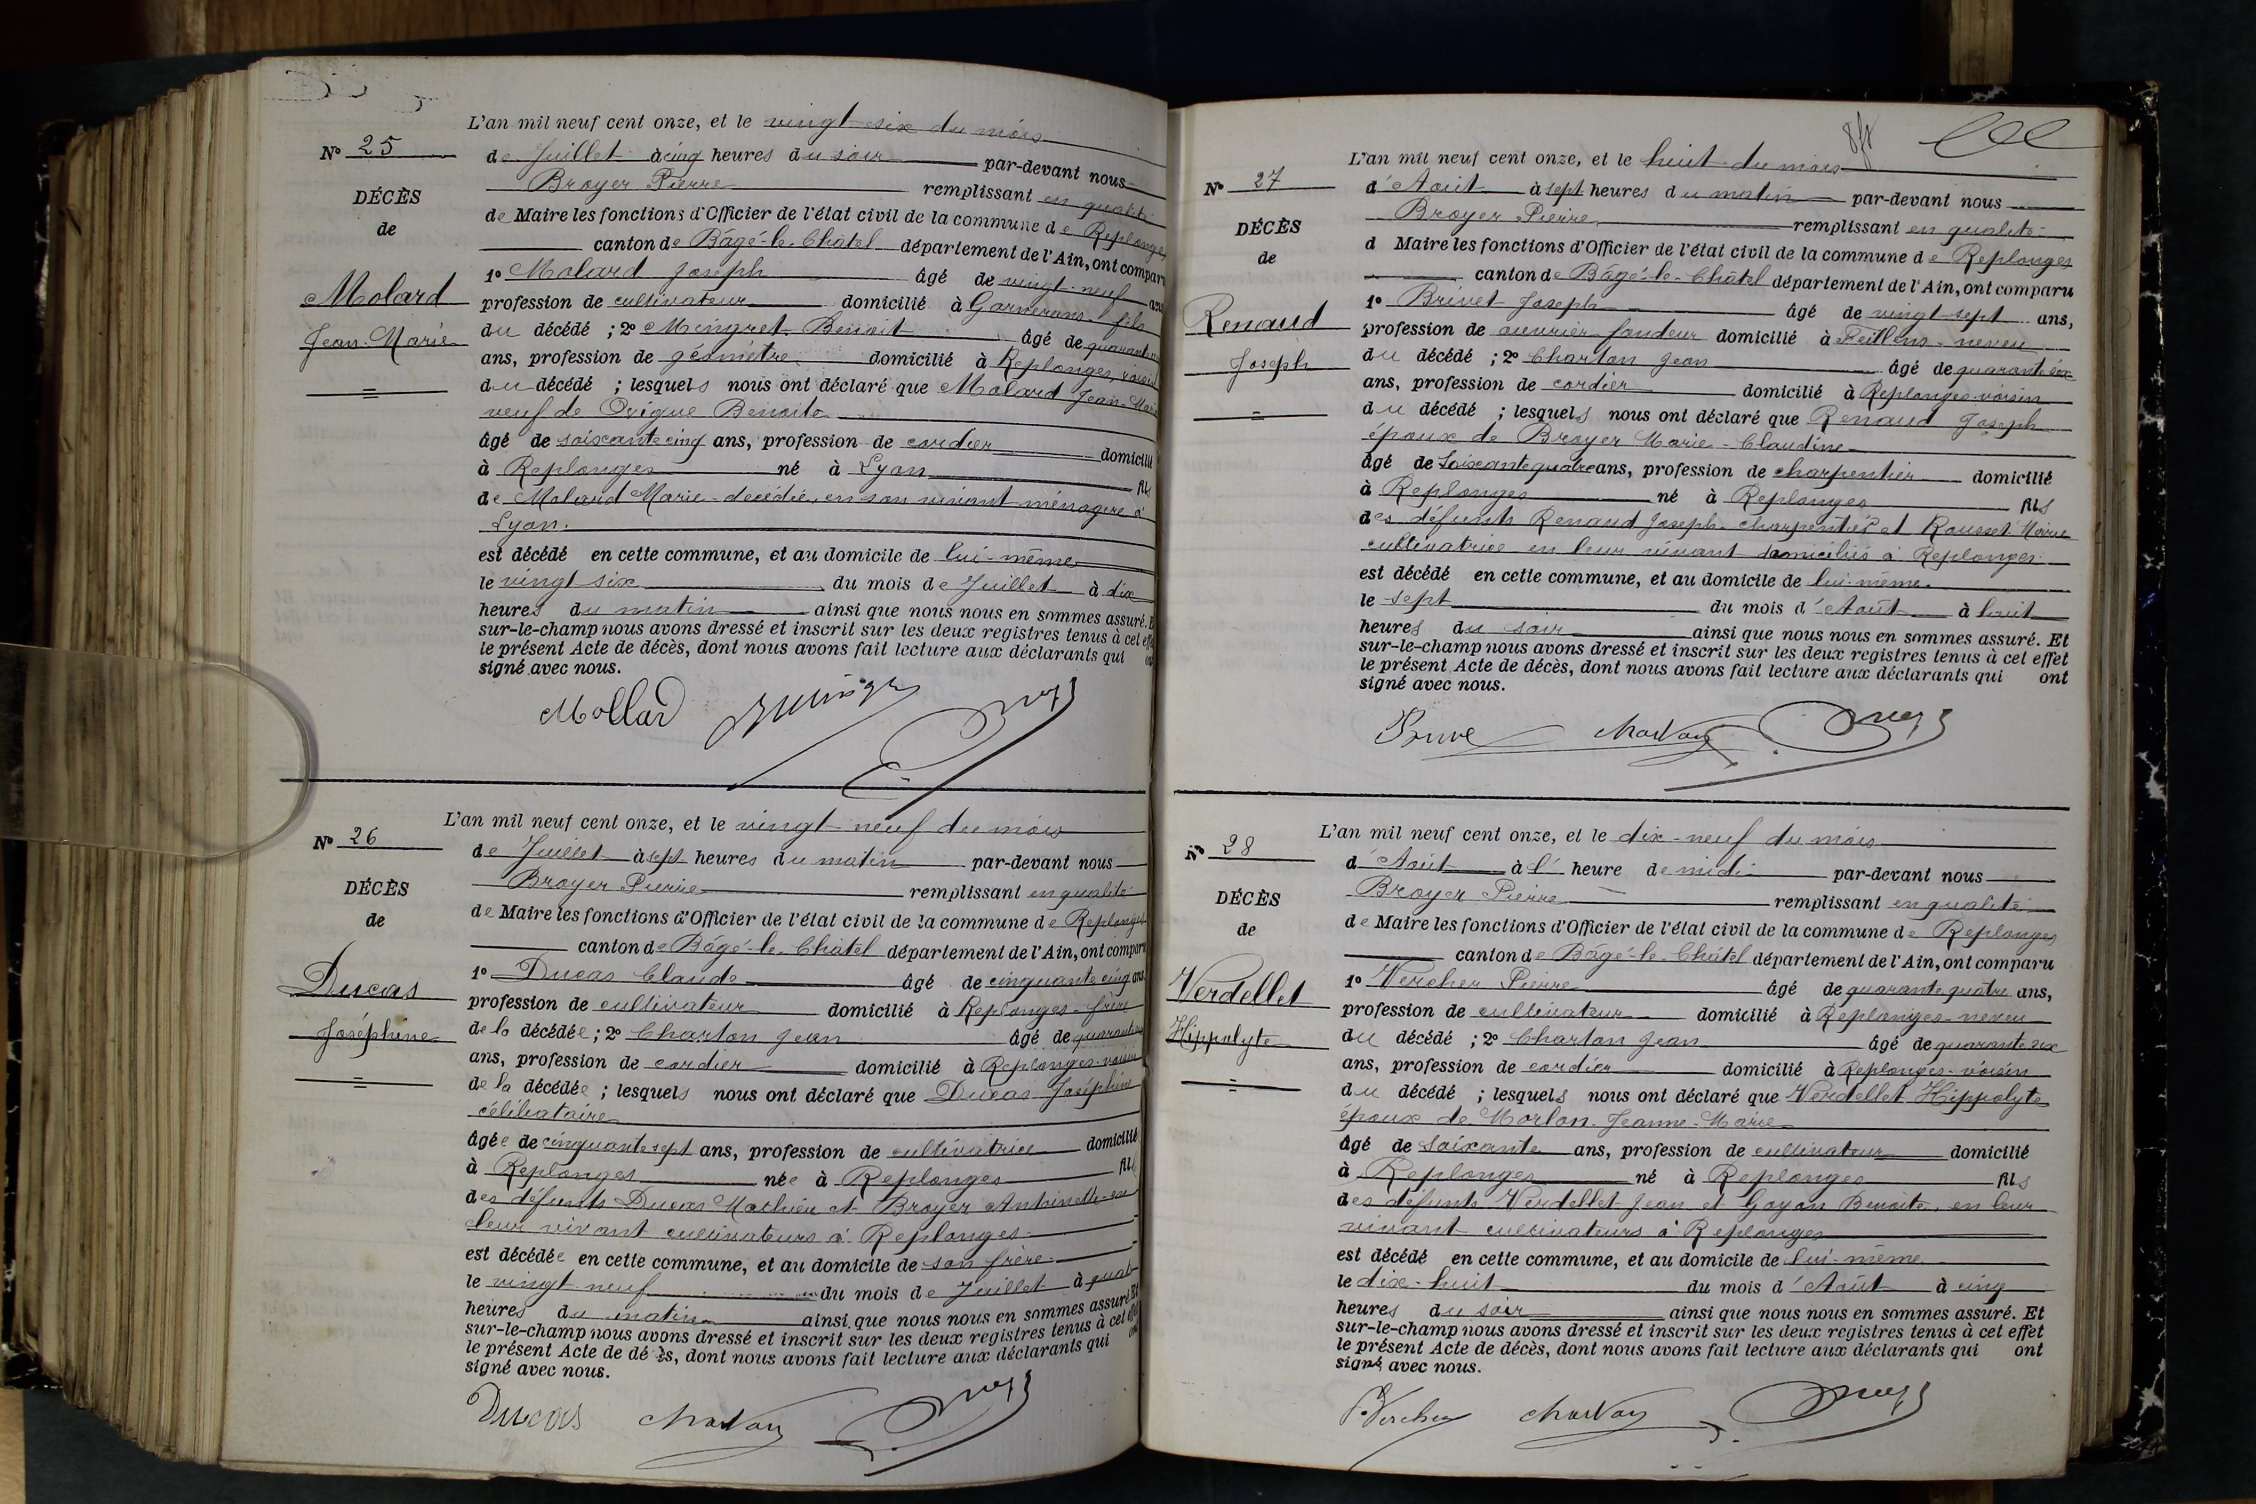 L'an mil neuf cent onze, et le vingt-six du mois
N° 25
de Juillet à cinq heures du soir par-devant nous
Broyer Pierre remplissant en qualité
DÉCÈS
de Maire les fonctions d'Officier de l'état civil de la commune de Replonges
de
canton de Bâgé-le-Châtel département de l'Ain, ont comparu
1° Molard Joseph âgé de vingt-neuf ans
Molard
profession de cultivateur domicilié à Garnerans fils
Jean-Marie
du décédé ; 2° Mingret Benoit âgé de quarante
ans, profession de géomètre domicilié à Replonges, voisin
du décédé ; lesquels nous ont déclaré que Molard Jean-Marie
veuf de Benoite
âgé de soixante cinq ans, profession de cordier domicilié
à Replonges né à Lyon fils
de Molard Marie décédée, en son vivant ménagère à
Lyon.
est décédé en cette commune, et au domicile de lui-même
le vingt six du mois de Juillet à dix
heures du matin ainsi que nous nous en sommes assuré. E
sur-le-champ nous avons dressé et inscrit sur les deux registres tenus à cet effet
le présent Acte de décès, dont nous avons fait lecture aux déclarants qui ont
signé avec nous.
Mollard
L'an mil neuf cent onze, et le vingt-neuf du mois
N° 26
de Juillet à sept heures du matin par-devant nous
Broyer Pierre remplissant en qualité
DÉCÈS
de Maire les fonctions d'Officier de l'état civil de la commune de Replonges
de
canton de Bâgé-le-Châtel département de l'Ain, ont comparu
1° Ducas Claude âgé de cinquante cinq ans
Ducas
profession de cultivateur domicilié à Replonges frère
Joséphine
de la décédée ; 2° Charton Jean âgé de quarante
ans, profession de cordier domicilié à Replonges-voisin
de la décédée ; lesquels nous ont déclaré que Ducas Joséphine
célibataire
âgée de cinquante sept ans, profession de cultivatrice domicilié
à Replonges née à Replonges fil
des défunts Ducas Mathieu et Broyer Antoinette en
leur vivant cultivateurs à Replonges
est décédée en cette commune, et au domicile de son frère
le vingt neuf du mois de Juillet à quat
heures du matin ainsi que nous nous en sommes assuré. Et
sur-le-champ nous avons dressé et inscrit sur les deux registres tenus à cet effet
le présent Acte de dé ès, dont nous avons fait lecture aux déclarants qui ont
signé avec nous.
Ducas Charton
L'an mil neuf cent onze, et le huit du mois
N° 27
d'Août à sept heures du matin par-devant nous
Broyer Pierre remplissant en qualité
DÉCÈS
d Maire les fonctions d'Officier de l'état civil de la commune de Replonges
de
canton de Bâgé-le-Châtel département de l'Ain, ont comparu
1° Brivet Joseph âgé de vingt sept ans,
Renaud
profession de ouvrier fondeur domicilié à Feillens-neveu
Joseph
du décédé ; 2° Charton Jean âgé de quarante six
ans, profession de cordier domicilié à Replonges-voisin
du décédé ; lesquels nous ont déclaré que Renaud Joseph
époux de Broyer Marie-Claudine
âgé de soixante quatre ans, profession de charpentier domicilié
à Replonges né à Replonges fils
des défunts Renaud Joseph charpentier et Rousset Marie
cultivatrice en leur vivant domiciliés à Replonges
est décédé en cette commune, et au domicile de lui-même.
le sept du mois d'Août à huit
heures du soir ainsi que nous nous en sommes assuré. Et
sur-le-champ nous avons dressé et inscrit sur les deux registres tenus à cet effet
le présent Acte de décès, dont nous avons fait lecture aux déclarants qui ont
signé avec nous.
Charton
L'an mil neuf cent onze, et le dix-neuf du mois
N° 28
d'Août à l' heure de midi par-devant nous
Broyer Pierre remplissant en qualité
DÉCÈS
de Maire les fonctions d'Officier de l'état civil de la commune de Replonges
de
canton de Bâgé-le-Châtel département de l'Ain, ont comparu
1° Vercher Pierre âgé de quarante quatre ans,
Verdellet
profession de cultivateur domicilié à Replonges-neveu
Hippolyte
du décédé ; 2° Charton Jean âgé de quarante six
ans, profession de cordier domicilié à Replonges-voisin
du décédé ; lesquels nous ont déclaré que Verdellet Hippolyte
époux de Morlon Jeanne-Marie
âgé de soixante ans, profession de cultivateur domicilié
à Replonges né à Replonges fils
des défunts Verdellet Jean et Goyon Benoite, en leur
vivant cultivateurs à Replonges
est décédé en cette commune, et au domicile de lui-même
le dix-huit du mois d'Août à cinq
heures du soir ainsi que nous nous en sommes assuré. Et
sur-le-champ nous avons dressé et inscrit sur les deux registres tenus à cet effet
le présent Acte de décès, dont nous avons fait lecture aux déclarants qui ont
signé avec nous.
P. Vercher Charton